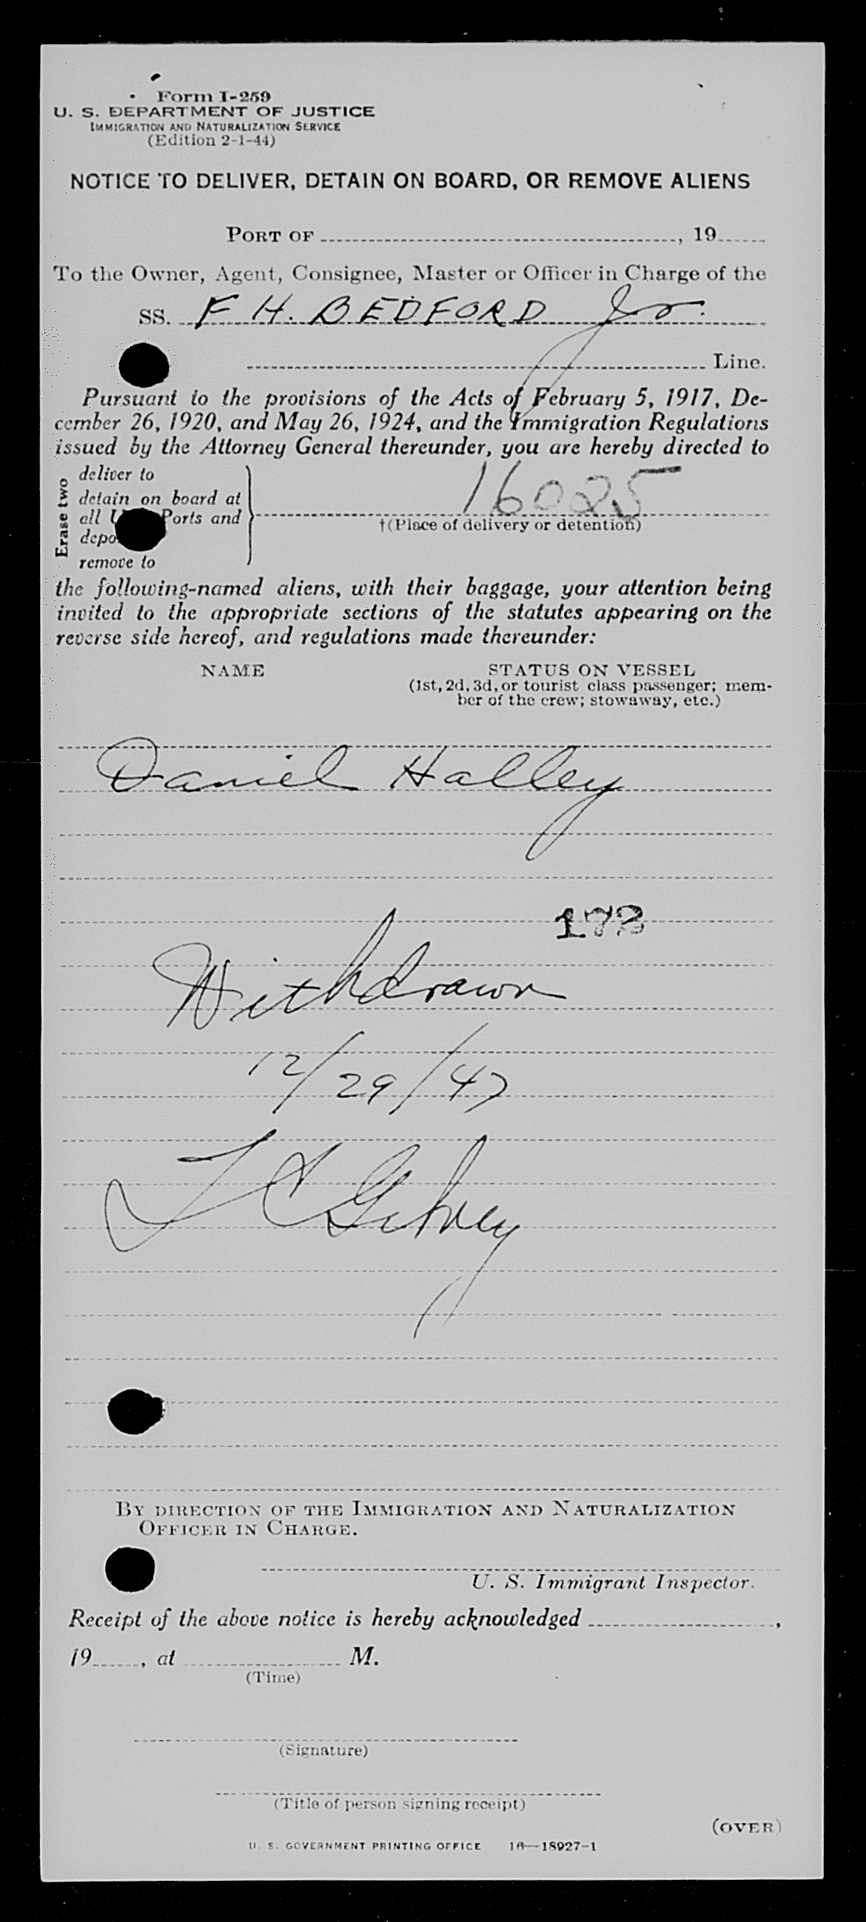 Form I-259
U. S. DEPARTMENT OF JUSTICE
IMMIGRATION AND NATURALIZATION SERVICE
(Edition 2-1-44)
NOTICE TO DELIVER, DETAIN ON BOARD, OR REMOVE ALIENS
PORT OF , 19
To the Owner, Agent, Consignee, Master or Officer in Charge of the
SS. F H. BEDFORD Jr.
Line.
Pursuant to the provisions of the Acts of February 5, 1917, De-
cember 26, 1920, and May 26, 1924, and the Immigration Regulations
issued by the Attorney General thereunder, you are hereby directed to
Erase two
deliver to
detain on board at
all Ports and
depo
remove to
16025
†(Place of delivery or detention)
the following-named aliens, with their baggage, your attention being
invited to the appropriate sections of the statutes appearing on the
reverse side hereof, and regulations made thereunder:
NAME STATUS ON VESSEL
(1st, 2d, 3d, or tourist class passenger; mem-
ber of the crew; stowaway, etc.)
Daniel Halley
173
Withdrawn
12/29/47
BY DIRECTION OF THE IMMIGRATION AND NATURALIZATION
OFFICER IN CHARGE.
U. S. Immigrant Inspector.
Receipt of the above notice is hereby acknowledged ,
19 , at M.
(Time)
(Signature)
(Title of person signing receipt)
(OVER)
U. S. GOVERNMENT PRINTING OFFICE 16—18927-1